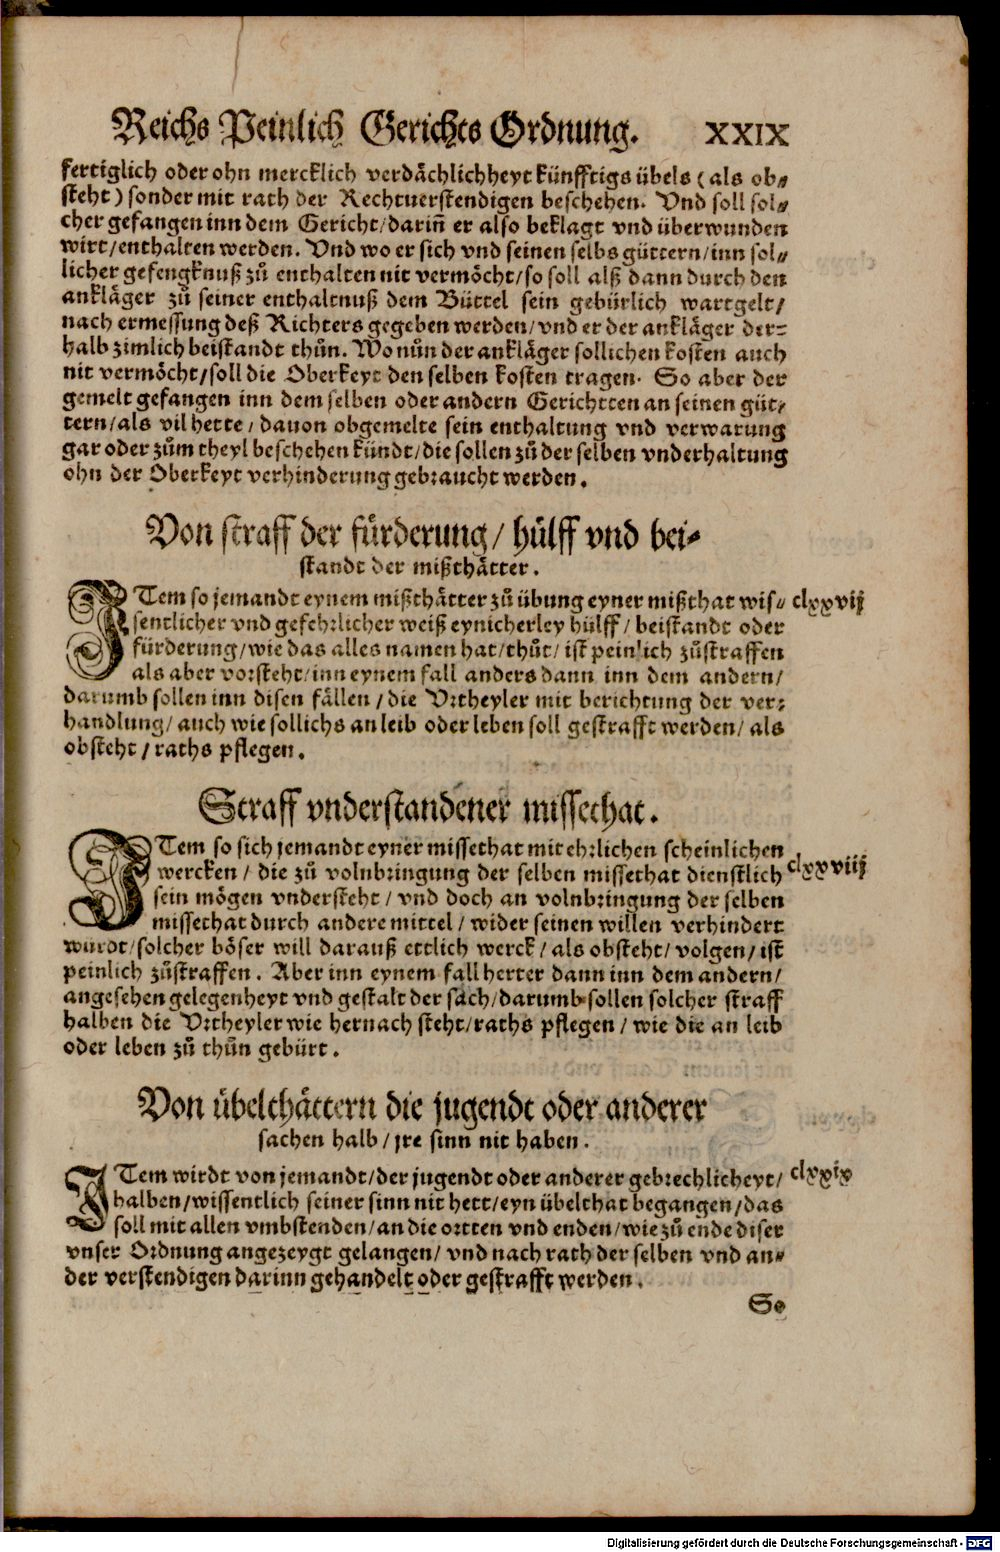 Reichs Peinlich Gerichts Ordnung. XXIX
fertiglich oder ohn mercklich verdächlichheyt künfftigs übels (als ob⸗
steht) sonder mit rath der Rechtuerstendigen beschehen. Vnd soll sol⸗
cher gefangen inn dem Gericht/ darin̄ er also beklagt vnd überwunden
wirt/ enthalten werden. Vnd wo er sich vnd seinen selbs güttern/ inn sol⸗
licher gefengknuß zů enthalten nit vermöcht/ so soll alß dann durch den
ankläger zů seiner enthaltnuß dem Büttel sein gebürlich wartgelt/
nach ermessung deß Richters gegeben werden/ vnd er der ankläger der⸗
halb zimlich beistandt thůn. Wo nůn der ankläger sollichen kosten auch
nit vermöcht/ soll die Oberkeyt den selben kosten tragen. So aber der
gemelt gefangen inn dem selben oder andern Gerichtten an seinen güt⸗
tern/ als vil hette/ dauon obgemelte sein enthaltung vnd verwarung
gar oder zům theyl beschehen kündt/ die sollen zů der selben vnderhaltung
ohn der Oberkeyt verhinderung gebraucht werden.
Von straff der fürderung/ hülff vnd bei⸗
standt der mißthätter.
ITem so jemandt eynem mißthätter zů übung eyner mißthat wis⸗ clxxvij
sentlicher vnd gefehrlicher weiß eynicherley hülff/ beistandt oder
fürderung/ wie das alles namen hat/ thůt/ ist peinlich zůstraffen
als aber vorsteht/ inn eynem fall anders dann inn dem andern/
darumb sollen inn disen fällen/ die Vrtheyler mit berichtung der ver⸗
handlung/ auch wie sollichs an leib oder leben soll gestrafft werden/ als
obsteht/ raths pflegen.
Straff vnderstandener missethat.
ITem so sich jemandt eyner missethat mit ehrlichen scheinlichen
wercken/ die zů volnbringung der selben missethat dienstlich clxxviij
sein mögen vndersteht/ vnd doch an volnbringung der selben
missethat durch andere mittel/ wider seinen willen verhindert
würdt/ solcher böser will darauß ettlich werck/ als obsteht/ volgen/ ist
peinlich zůstraffen. Aber inn eynem fall herter dann inn dem andern/
angesehen gelegenheyt vnd gestalt der sach/ darumb sollen solcher straff
halben die Vrtheyler wie hernach steht/ raths pflegen/ wie die an leib
oder leben zů thůn gebürt.
Von übelthättern die jugendt oder anderer
sachen halb/ jre sinn nit haben.
ITem wirdt von jemandt/ der jugendt oder anderer gebrechlicheyt/ clxxix
halben/ wissentlich seiner sinn nit hett/ eyn übelthat begangen/ das
soll mit allen vmbstenden/ an die ortten vnd enden/ wie zů ende diser
vnser Ordnung angezeygt gelangen/ vnd nach rath der selben vnd an⸗
der verstendigen darinn gehandelt oder gestrafft werden.
So
Digitalisierung gefördert durch die Deutsche Forschungsgemeinschaft - DFG